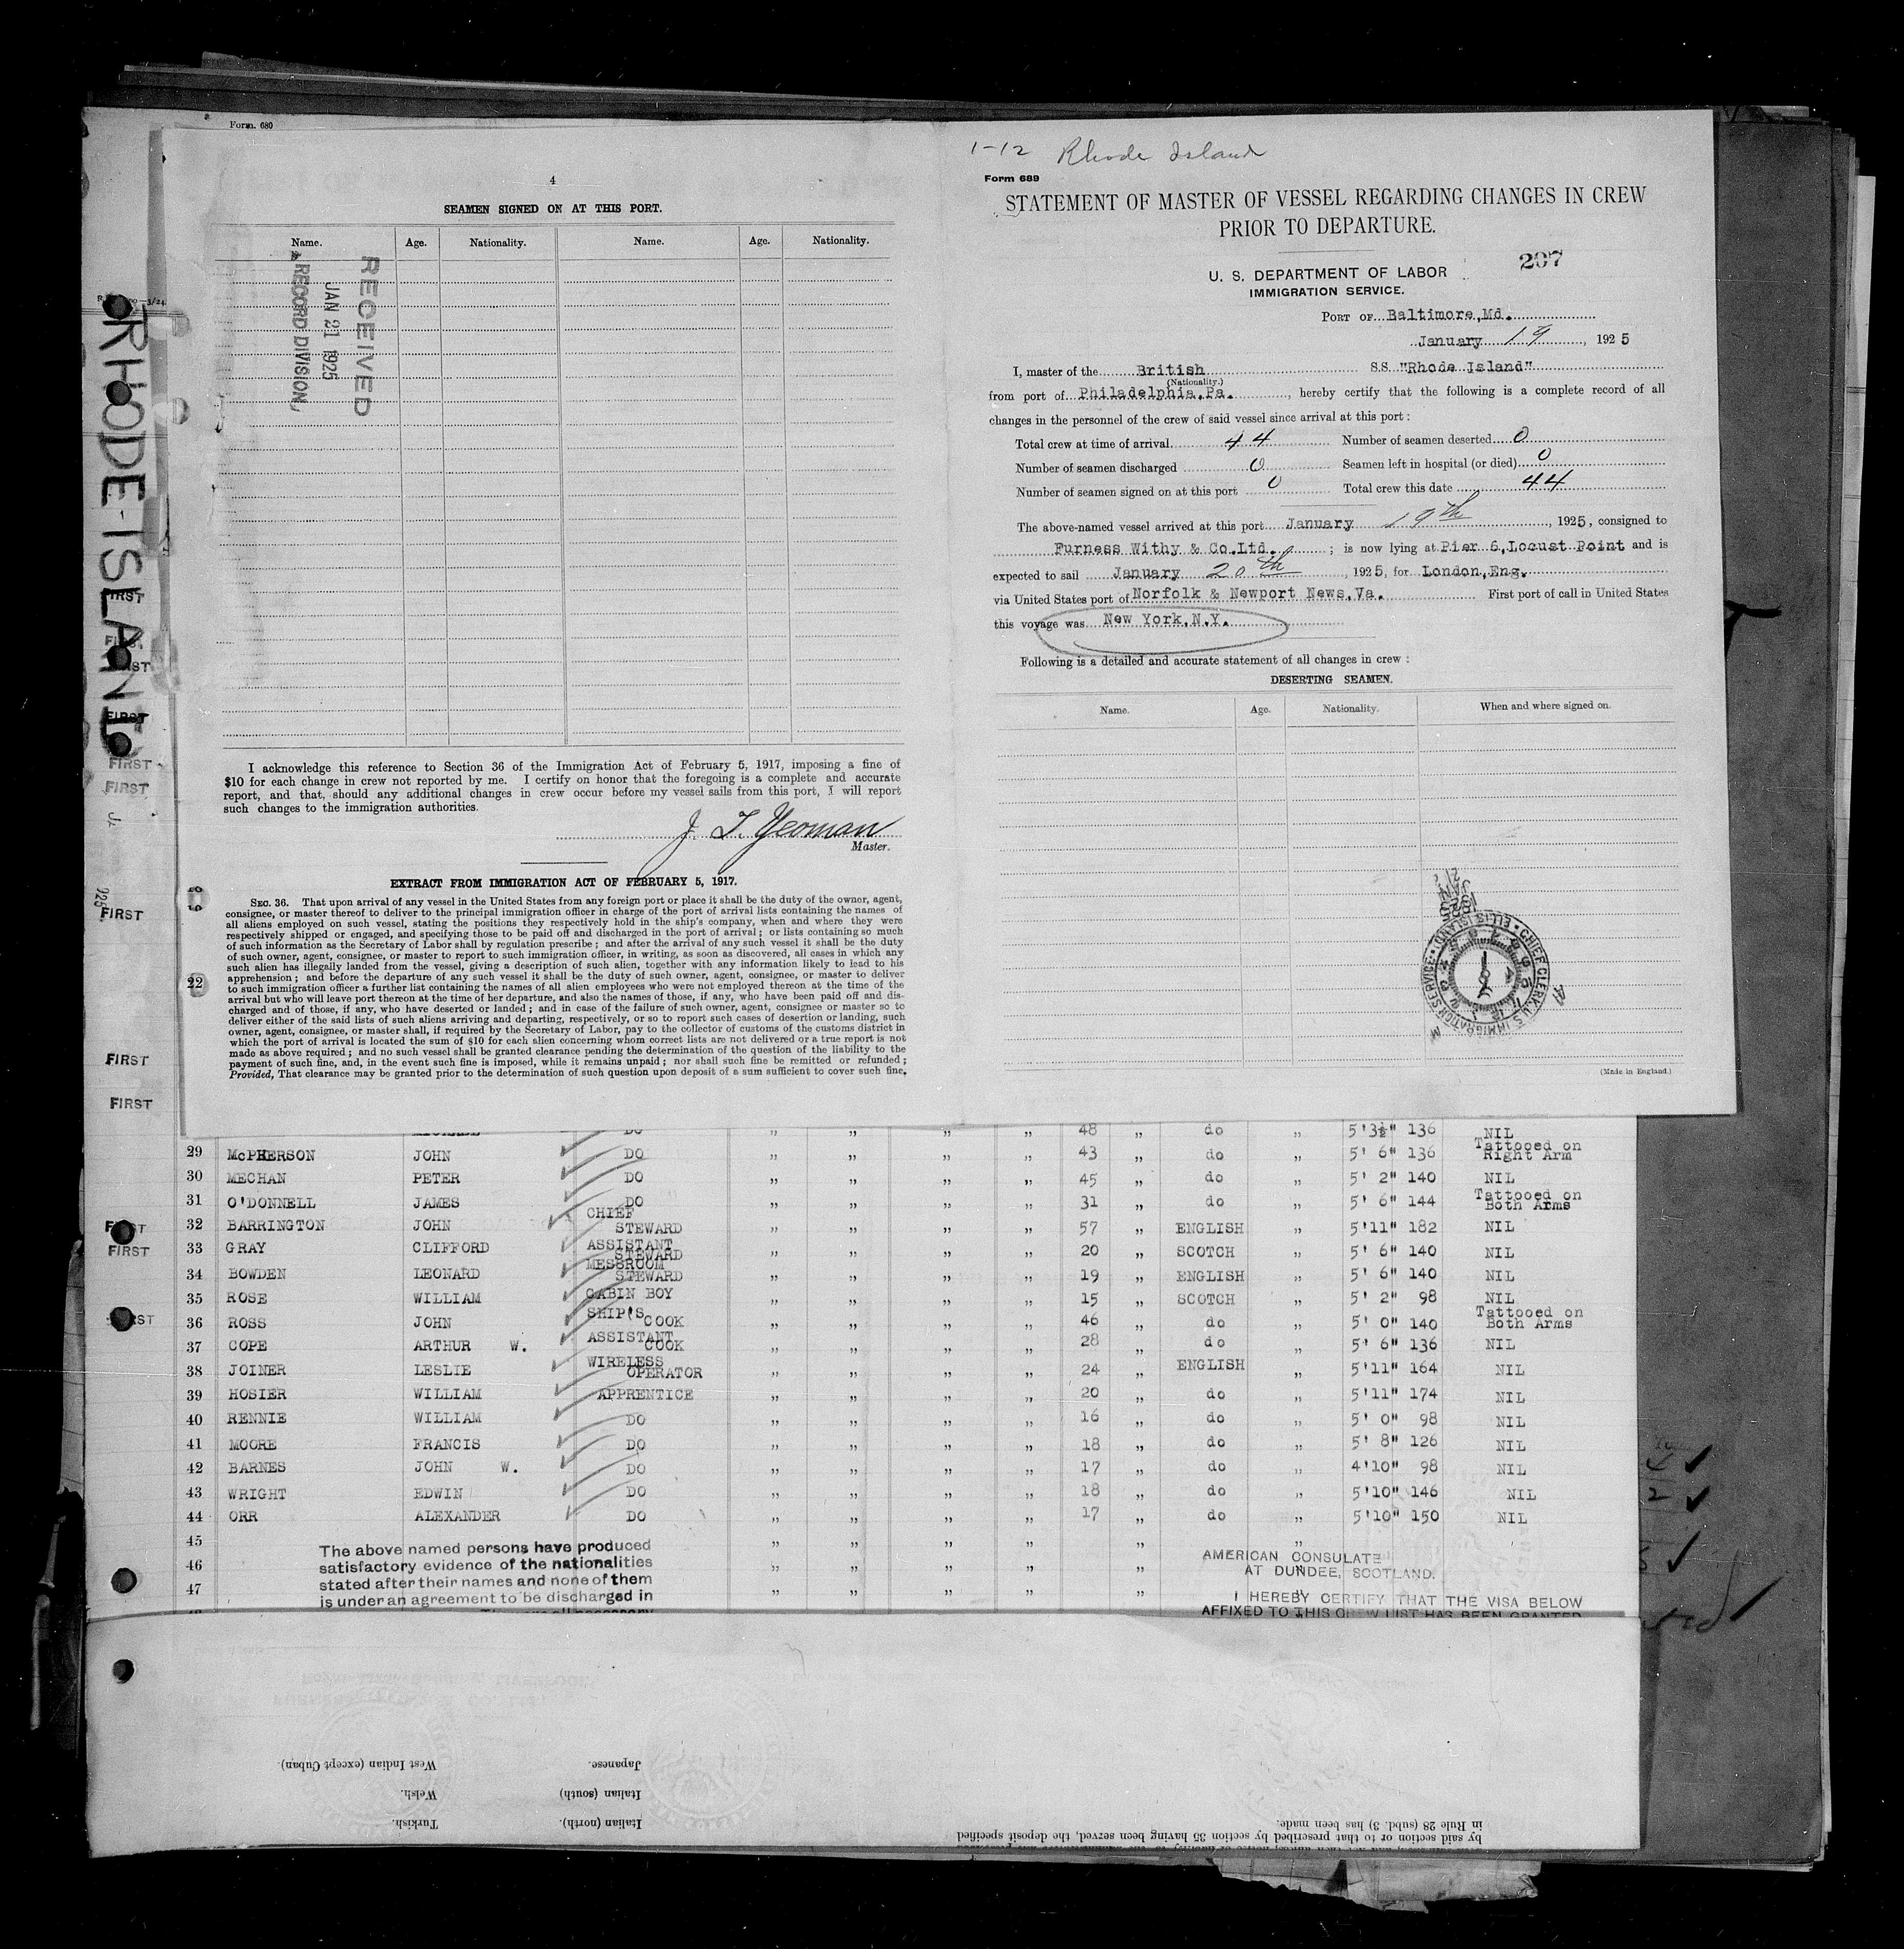 Form. 680
4
SEAMEN SIGNED ON AT THIS PORT.
Name. Age. Nationality. Name. Age. Nationality.
RECEIVED
JAN 21 1925
RECORD DIVISION,
I acknowledge this reference to Section 36 of the Immigration Act of February 5, 1917, imposing a fine of
$10 for each change in crew not reported by me. I certify on honor that the foregoing is a complete and accurate
report, and that, should any additional changes in crew occur before my vessel sails from this port, I will report
such changes to the immigration authorities.
J. T. Yeoman
Master.
EXTRACT FROM IMMIGRATION ACT OF FEBRUARY 5, 1917.
SEC. 36. That upon arrival of any vessel in the United States from any foreign port or place it shall be the duty of the owner, agent,
consignee, or master thereof to deliver to the principal immigration officer in charge of the port of arrival lists containing the names of
all aliens employed on such vessel, stating the positions they respectively hold in the ship's company, when and where they were
respectively shipped or engaged, and specifying those to be paid off and discharged in the port of arrival; or lists containing so much
of such information as the Secretary of Labor shall by regulation prescribe; and after the arrival of any such vessel it shall be the duty
of such owner, agent, consignee, or master to report to such immigration officer, in writing, as soon as discovered, all cases in which any
such alien has illegally landed from the vessel, giving a description of such alien, together with any information likely to lead to his
apprehension; and before the departure of any such vessel it shall be the duty of such owner, agent, consignee, or master to deliver
to such immigration officer a further list containing the names of all alien employees who were not employed thereon at the time of the
arrival but who will leave port thereon at the time of her departure, and also the names of those, if any, who have been paid off and dis-
charged and of those, if any, who have deserted or landed; and in case of the failure of such owner, agent, consignee or master so to
deliver either of the said lists of such aliens arriving and departing, respectively, or so to report such cases of desertion or landing, such
owner, agent, consignee, or master shall, if required by the Secretary of Labor, pay to the collector of customs of the customs district in
which the port of arrival is located the sum of $10 for each alien concerning whom correct lists are not delivered or a true report is not
made as above required; and no such vessel shall be granted clearance pending the determination of the question of the liability to the
payment of such fine, and, in the event such fine is imposed, while it remains unpaid; nor shall such fine be remitted or refunded;
Provided, That clearance may be granted prior to the determination of such question upon deposit of a sum sufficient to cover such fine.
1-12 Rhode Island
Form 689
STATEMENT OF MASTER OF VESSEL REGARDING CHANGES IN CREW
PRIOR TO DEPARTURE.
207
U. S. DEPARTMENT OF LABOR
IMMIGRATION SERVICE.
PORT OF Baltimore,Md.
January 19, 1925
I, master of the British SS. "Rhode Island"
(Nationality.)
from port of Philadelphia,Pa., hereby certify that the following is a complete record of all
changes in the personnel of the crew of said vessel since arrival at this port:
Total crew at time of arrival 44 Number of seamen deserted 0
Number of seamen discharged 0 Seamen left in hospital (or died) 0
Number of seamen signed on at this port 0 Total crew this date 44
The above-named vessel arrived at this port January 19th, 1925, consigned to
Furness Withy & Co.Ltd.; is now lying at Pier 6,Locust Point and is
expected to sail January 20th, 1925, for London,Eng.
via United States port of Norfolk & Newport News,Va. First port of call in United States
this voyage was New York,N.Y.
Following is a detailed and accurate statement of all changes in crew:
DESERTING SEAMEN.
Name. Age. Nationality. When and where signed on.
CHIEF CLERK, U.S. IMMIGRATION SERVICE ELLIS ISLAND
(Made in England.)
RHODE-ISLAND
FIRST
FIRST
FIRST
FIRST
FIRST
FIRST
FIRST
FIRST
FIRST
FIRST
FIRST
FIRST
22
DO „ „ „ „ 48 „ do „ 5'3½" 136 NIL
29 McPHERSON JOHN DO „ „ „ „ 43 „ do „ 5' 6" 136 Tattooed on Right Arm
30 MECHAN PETER DO „ „ „ „ 45 „ do „ 5' 2" 140 NIL
31 O'DONNELL JAMES DO „ „ „ „ 31 „ do „ 5' 6" 144 Tattooed on Both Arms
32 BARRINGTON JOHN CHIEF STEWARD „ „ „ „ 57 „ ENGLISH „ 5'11" 182 NIL
33 GRAY CLIFFORD ASSISTANT STEWARD „ „ „ „ 20 „ SCOTCH „ 5' 6" 140 NIL
34 BOWDEN LEONARD MESSROOM STEWARD „ „ „ „ 19 „ ENGLISH „ 5' 6" 140 NIL
35 ROSE WILLIAM CABIN BOY „ „ „ „ 15 „ SCOTCH „ 5' 2" 98 NIL
36 ROSS JOHN SHIP'S COOK „ „ „ „ 46 „ do „ 5' 0" 140 Tattooed on Both Arms
37 COPE ARTHUR W. ASSISTANT COOK „ „ „ „ 28 „ do „ 5' 6" 136 NIL
38 JOINER LESLIE WIRELESS OPERATOR „ „ „ „ 24 „ ENGLISH „ 5'11" 164 NIL
39 HOSIER WILLIAM APPRENTICE „ „ „ „ 20 „ do „ 5'11" 174 NIL
40 RENNIE WILLIAM DO „ „ „ „ 16 „ do „ 5' 0" 98 NIL
41 MOORE FRANCIS DO „ „ „ „ 18 „ do „ 5' 8" 126 NIL
42 BARNES JOHN W. DO „ „ „ „ 17 „ do „ 4'10" 98 NIL
43 WRIGHT EDWIN DO „ „ „ „ 18 „ do „ 5'10" 146 NIL
44 ORR ALEXANDER DO „ „ „ „ 17 „ do „ 5'10" 150 NIL
45
46
47
The above named persons have produced
satisfactory evidence of the nationalities
stated after their names and none of them
is under an agreement to be discharged in
AMERICAN CONSULATE
AT DUNDEE, SCOTLAND.
I HEREBY CERTIFY THAT THE VISA BELOW
AFFIXED TO THIS CREW LIST HAS BEEN GRANTED
West Indian (except Cuban). Japanese.
Welsh. Italian (south)
Turkish. Italian (north).
in Rule 28 (subd. 3) has been made.
by said section or to that prescribed by section 35 having been served, the deposit specified